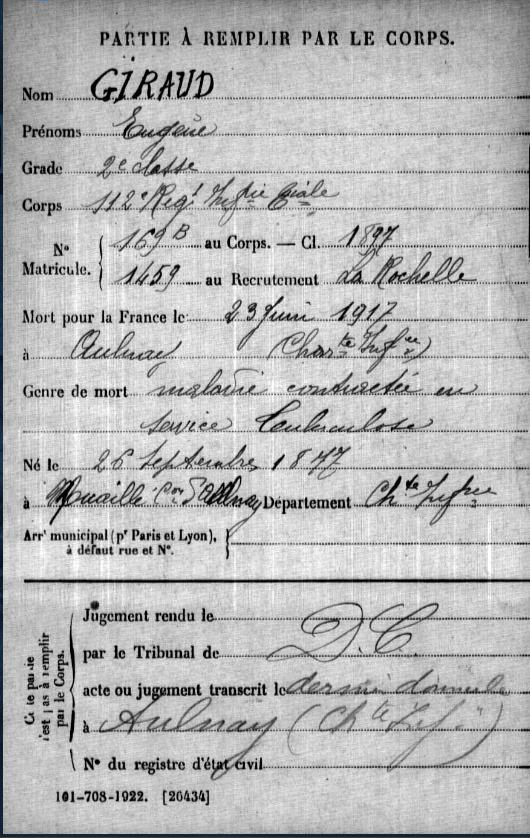 PARTIE À REMPLIR PAR LE CORPS.
Nom GIRAUD
Prénoms Eugène
Grade 2e classe
Corps 112e Regt Infrie Ciale
No Matricule. 169 B au Corps. — Cl. 1897
1459 au Recrutement La Rochelle
Mort pour la France le 23 Juin 1917
à Aulnay (Charte Infre)
Genre de mort maladie contractée en
service Tuberculose
Né le 26 Septembre 1877
à Nuaillé Con d'Aulnay Département Chte Infre
Arrt municipal (pr Paris et Lyon),
à défaut rue et No.
Cette partie
n'est pas à remplir
par le Corps.
Jugement rendu le
par le Tribunal de D.C.
acte ou jugement transcrit le dernier domicile
à Aulnay (Chte Infre)
No du registre d'état civil
101-708-1922. [26434]